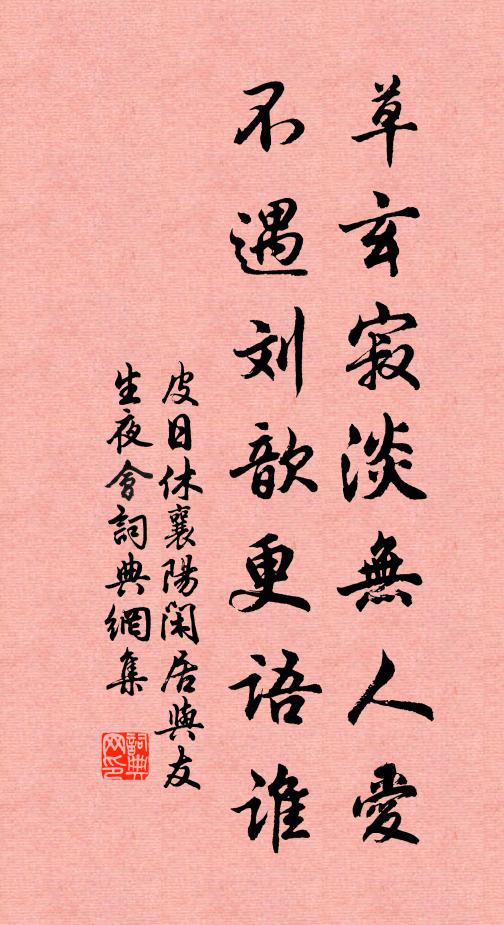 草玄寂淡無人愛
不遇刘歆更语谁
皮日休襄陽闲居與友
生夜會詞典網集
詞典
网印